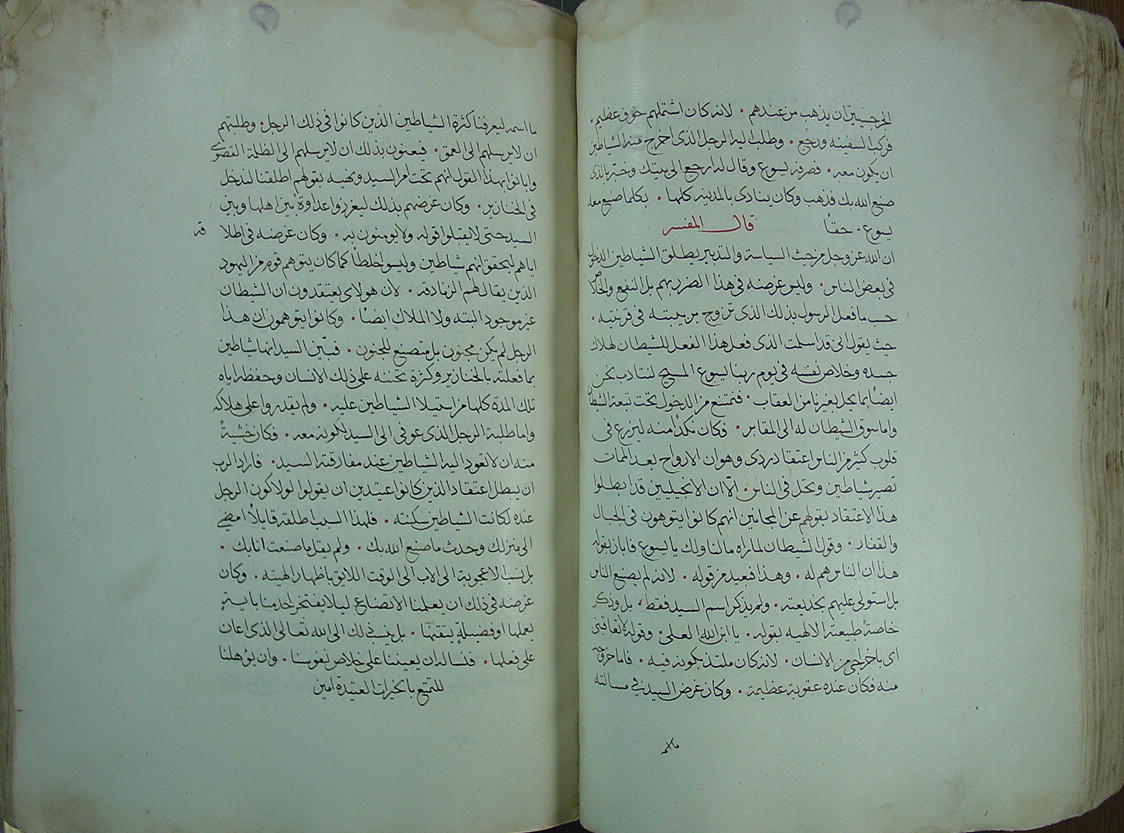 الجرجسيين ان يذهب من عندهم · لانه كان اشتملهم خوف عظيم ·
فركب السفينه ورجع · وطلب اليه الرجل الذى اخرج منه الشياطين
ان يكون معه · فصرفه يسوع وقال له ارجع الى بيتك وخبر بالذى
صنع الله بك فذهب وكان ينادى بالمدينه كلها · بكلما صنع معه
يسوع · حقاً قال المفسر
ان الله عز وجل من حيث السياسة والتدبير يطلق الشياطين
فى بعض الناس · وليس غرضه فى هذا الضرر بهم بل النفع والخلاص
حسب ما فعل الرسول بذلك الذى تزوج بربيبته فى قرنتيه ·
حيث يقول انى قد اسلمت الذى فعل هذا الفعل للشيطان لهلاك
جسده وخلاص نفسه فى يوم ربنا يسوع المسيح لنتادب نحن
ايضاً بما يحل بغيرنا من العقاب · فنمتنع من الدخول تحت تبعة الشيطان
واما سوق الشيطان له الى المقابر · فكان مكراً منه ليزرع فى
قلوب كثير من الناس اعتقاد ردى وهو ان الارواح بعد الممات
تصير شياطين وتحل فى الناس · الّا ان الانجيليين قد ابطلوا
هذا الاعتقاد بقولهم عن المجانين انهم كانوا يتوهون فى الجبال
والقفار · وقول الشيطان لما راه مالنا ولك يا يسوع فابان بقوله
هذا ان الناس هم له · وهذا فبعيد من قوله · لانه لم يصنع الناس
بل استولى عليهم بخديعته · ولم يذكر اسم السيد فقط · بل وذكر
خاصة طبيعته الالهيه بقوله · يا ابن الله العلى · وقوله لا تعاقبنى
اى لا تخرجنى من الانسان · لانه كان ملتذ بكونه فيه · فاما خروجه
منه فكان عنده عقوبة عظيمة · وكان غرض السيد فى مسالته
ما اسمه ليعرفنا كثرة الشياطين الذين كانوا فى ذلك الرجل · وطلبتهم
ان لا يرسلهم الى العمق · فيعنون بذلك ان لا يرسلهم الى الظلمة القصوى
وابانوا بهذا القول انهم تحت امر السيد وقضيه بقولهم اطلقنا لندخل
فى الخنازير · وكان غرضهم بذلك ليغرزوا عداوة بين اهلها وبين
السيد حتى لا يقبلوا قوله ولا يومنون به · وكان غرضه فى اطلاقه
اياهم ليحقق انهم شياطين وليس اخلطاً كما كان يتوهم قوم من اليهود
الذين يقال لهم الزنادقة · لأن هولاى يعتقدون ان الشيطان
غير موجود البته ولا الملاك ايضاً · وكانوا يتوهمون ان هذا
الرجل لم يكن مجنون بل متصنع للجنون · فبيّن السيد انها شياطين
بما فعلته بالخنازير وكثرة تحننه على ذلك الانسان وحفظه اياه
تلك المدة كلها من استيلا الشياطين عليه · ولم يقدروا على هلاكه
واما طلبة الرجل الذى عوفى الى السيد لكونه معه · فكان خشيةً
منه ان لا تعود اليه الشياطين عند مفارقته السيد · فاراد الرب
ان يبطل اعتقاد الذين كانوا عتيدين ان يقولوا لولا كون الرجل
عنده لكانت الشياطين سكنته · فلهذا السبب اطلقه قايلاً امضى
الى منزلك وحدث ما صنع الله بك · ولم يقل ما صنعت انا بك ·
بل نسب الاعجوبة الى الاب الى الوقت اللائق باظهار الهيته · وكان
غرضه فى ذلك ان يعلمنا الاتضاع ليلا يفتخر احدمنا باية
يعملها او فضيلةٍ يتقنها · بل ينسب ذلك الى الله تعالى الذى اعان
على فعلها · فنساله ان يعيننا على خلاص نفوسنا · وان يوهلنا
للتمتع بالخيرات العتيدة امين